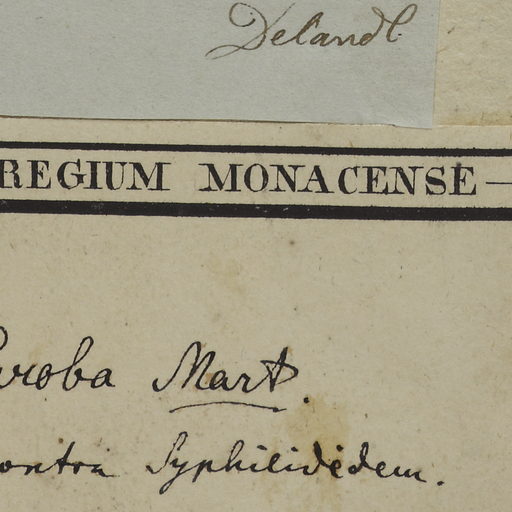 Delandl.
REGIUM MONACENSE —
roba Mart.
ontra Syphilididem.